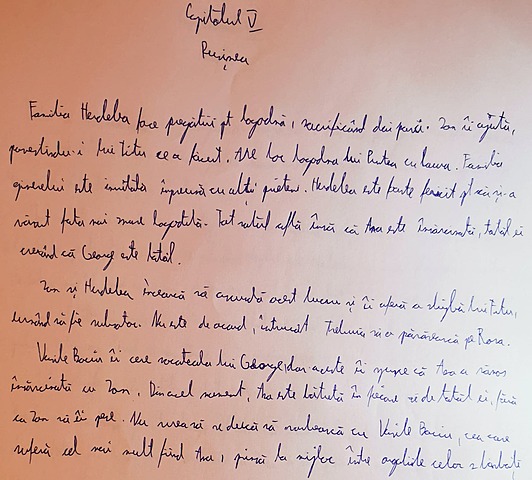 Capitolul V
Rușinea
Familia Herdelea face pregătiri pt logodnă, sacrificând doi purcei. Ion îi ajută,
povestindu-i lui Titu ce a făcut. Are loc logodna lui Pintea cu Laura. Familia
ginerelui este invitată împreună cu alți prieteni. Herdelea este foarte fericit pt că și-a
văzut fata mai mare logodită. Tot satul află însă că Ana este însărcinată, tatăl ei
crezând că George este tatăl.
Ion și Herdelea încearcă să ascundă acest lucru și îi oferă o slujbă lui Titu,
urmând să fie subnotar. Nu este de acord, întrucât trebuia să o părăsească pe Roza.
Vasile Baciu îi cere socoteala lui George, dar acesta îi spune că Ana a rămas
însărcinată cu Ion. Din acel moment, Ana este bătută în fiecare zi de tatăl ei, fără
ca Ion să îi pese. Nu vrea să se ducă să vorbească cu Vasile Baciu, cea care
suferă cel mai mult fiind Ana, prinsă la mijloc între orgoliile celor 2 bărbați